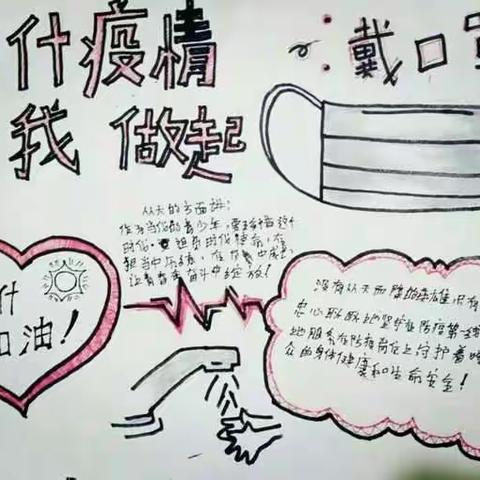 什疫情
我 做起
戴口罩
从大的方面讲：
作为当代的青少年，要珍惜这个
时代、担负时代使命，在
担当中历练，在尽责中成长，
让青春在奋斗中绽放！
什
加油！
没有从天而降的英雄只有
忠心耿耿地坚守在防疫第一线
地服务在防疫岗位上守护着
众的身体健康和生命安全！